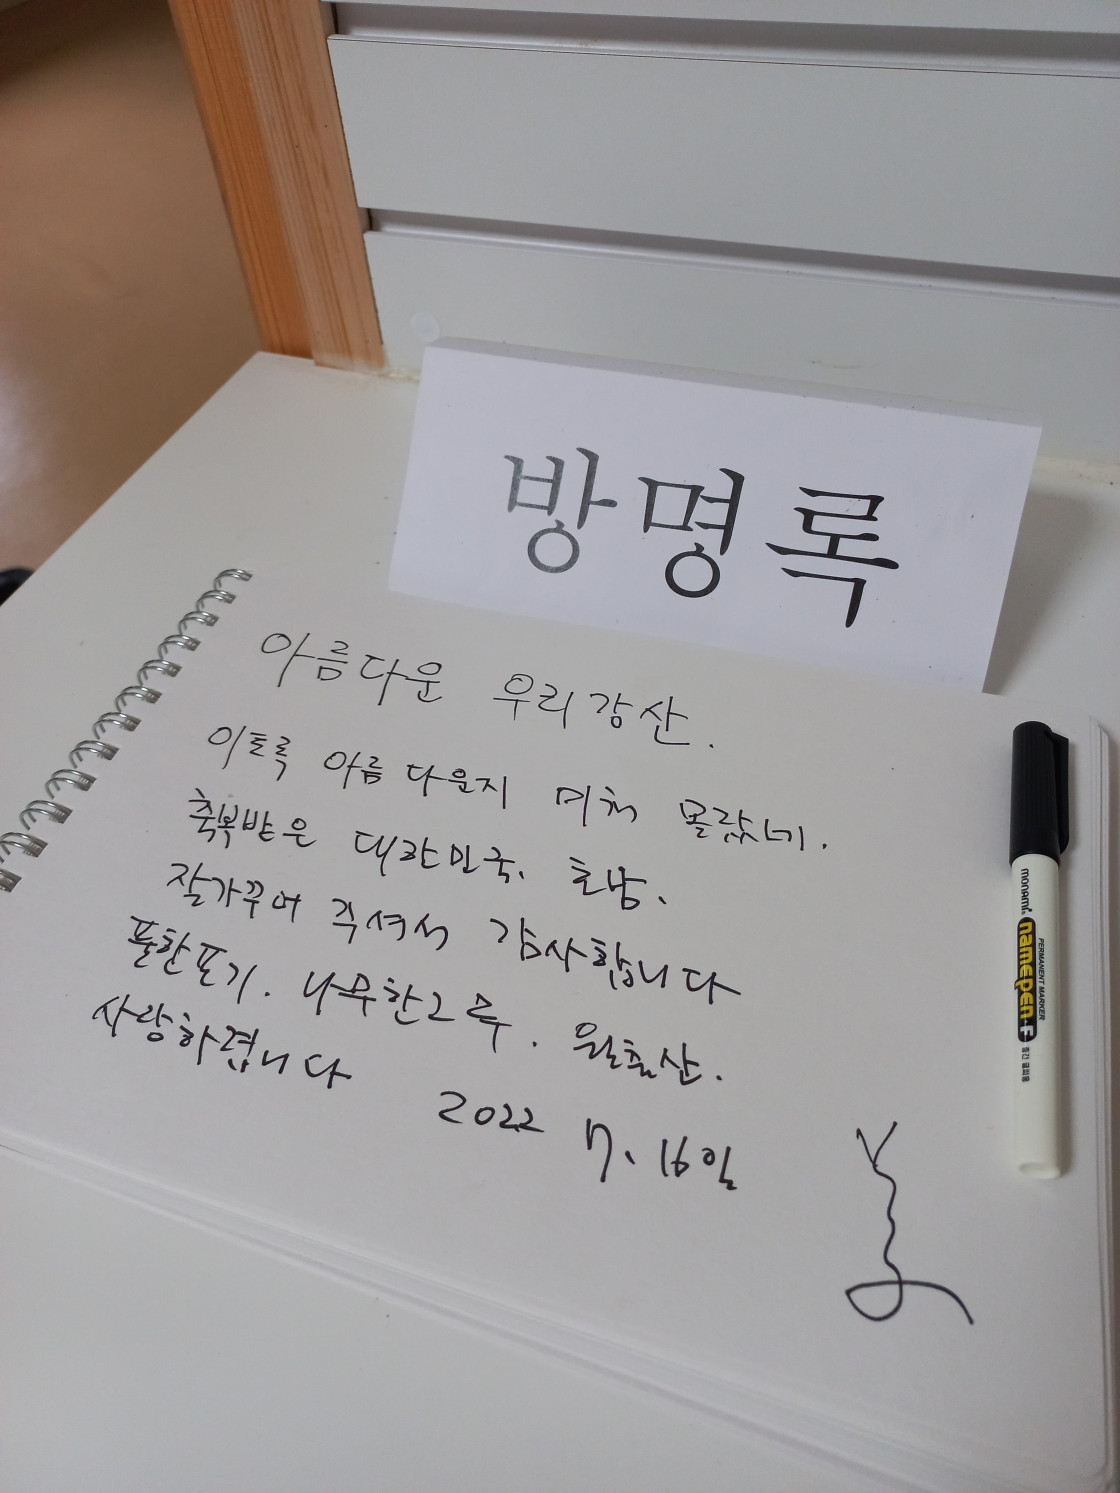 방명록
아름다운 우리강산.
이토록 아름다운지 미처 몰랐네.
축복받은 대한민국. 호남.
잘가꾸어 주셔서 감사합니다
풀한포기. 나무한그루. 월출산.
사랑하렵니다
2022 7. 16일
monami namepen-F
PERMANENT MARKER
중간 글씨용